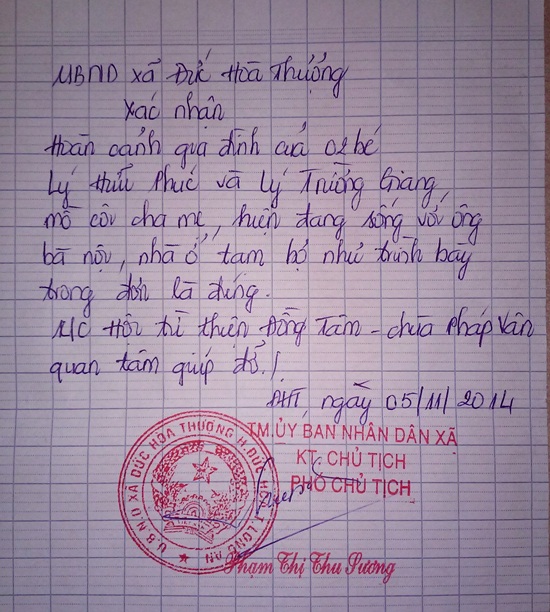 UBND xã Đức Hoà Thượng
Xác nhận
Hoàn cảnh gia đình của 02 bé
Lý Hữu Phúc và Lý Trường Giang,
mồ côi cha mẹ, hiện đang sống với ông
bà nội, nhà ở tạm bợ như trình bày
trong đơn là đúng.
M/C Hội từ thiện Đồng Tâm - chùa Pháp Vân
quan tâm giúp đỡ./.
ĐHT, ngày 05/11/2014
TM.ỦY BAN NHÂN DÂN XÃ
KT. CHỦ TỊCH
PHÓ CHỦ TỊCH
U.B.N.D XÃ ĐỨC HÒA THƯỢNG H.ĐỨC T.LONG AN
Phạm Thị Thu Sương